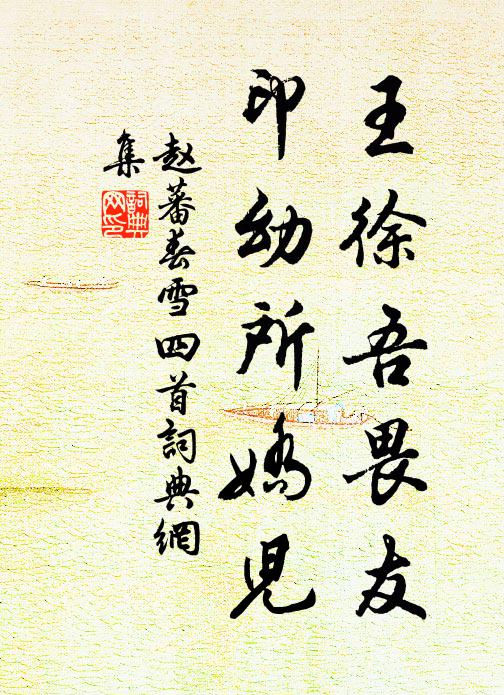 王徐吾畏友
印幼所嬌児
赵蕃春雪四首詞典網
集
詞典
网印